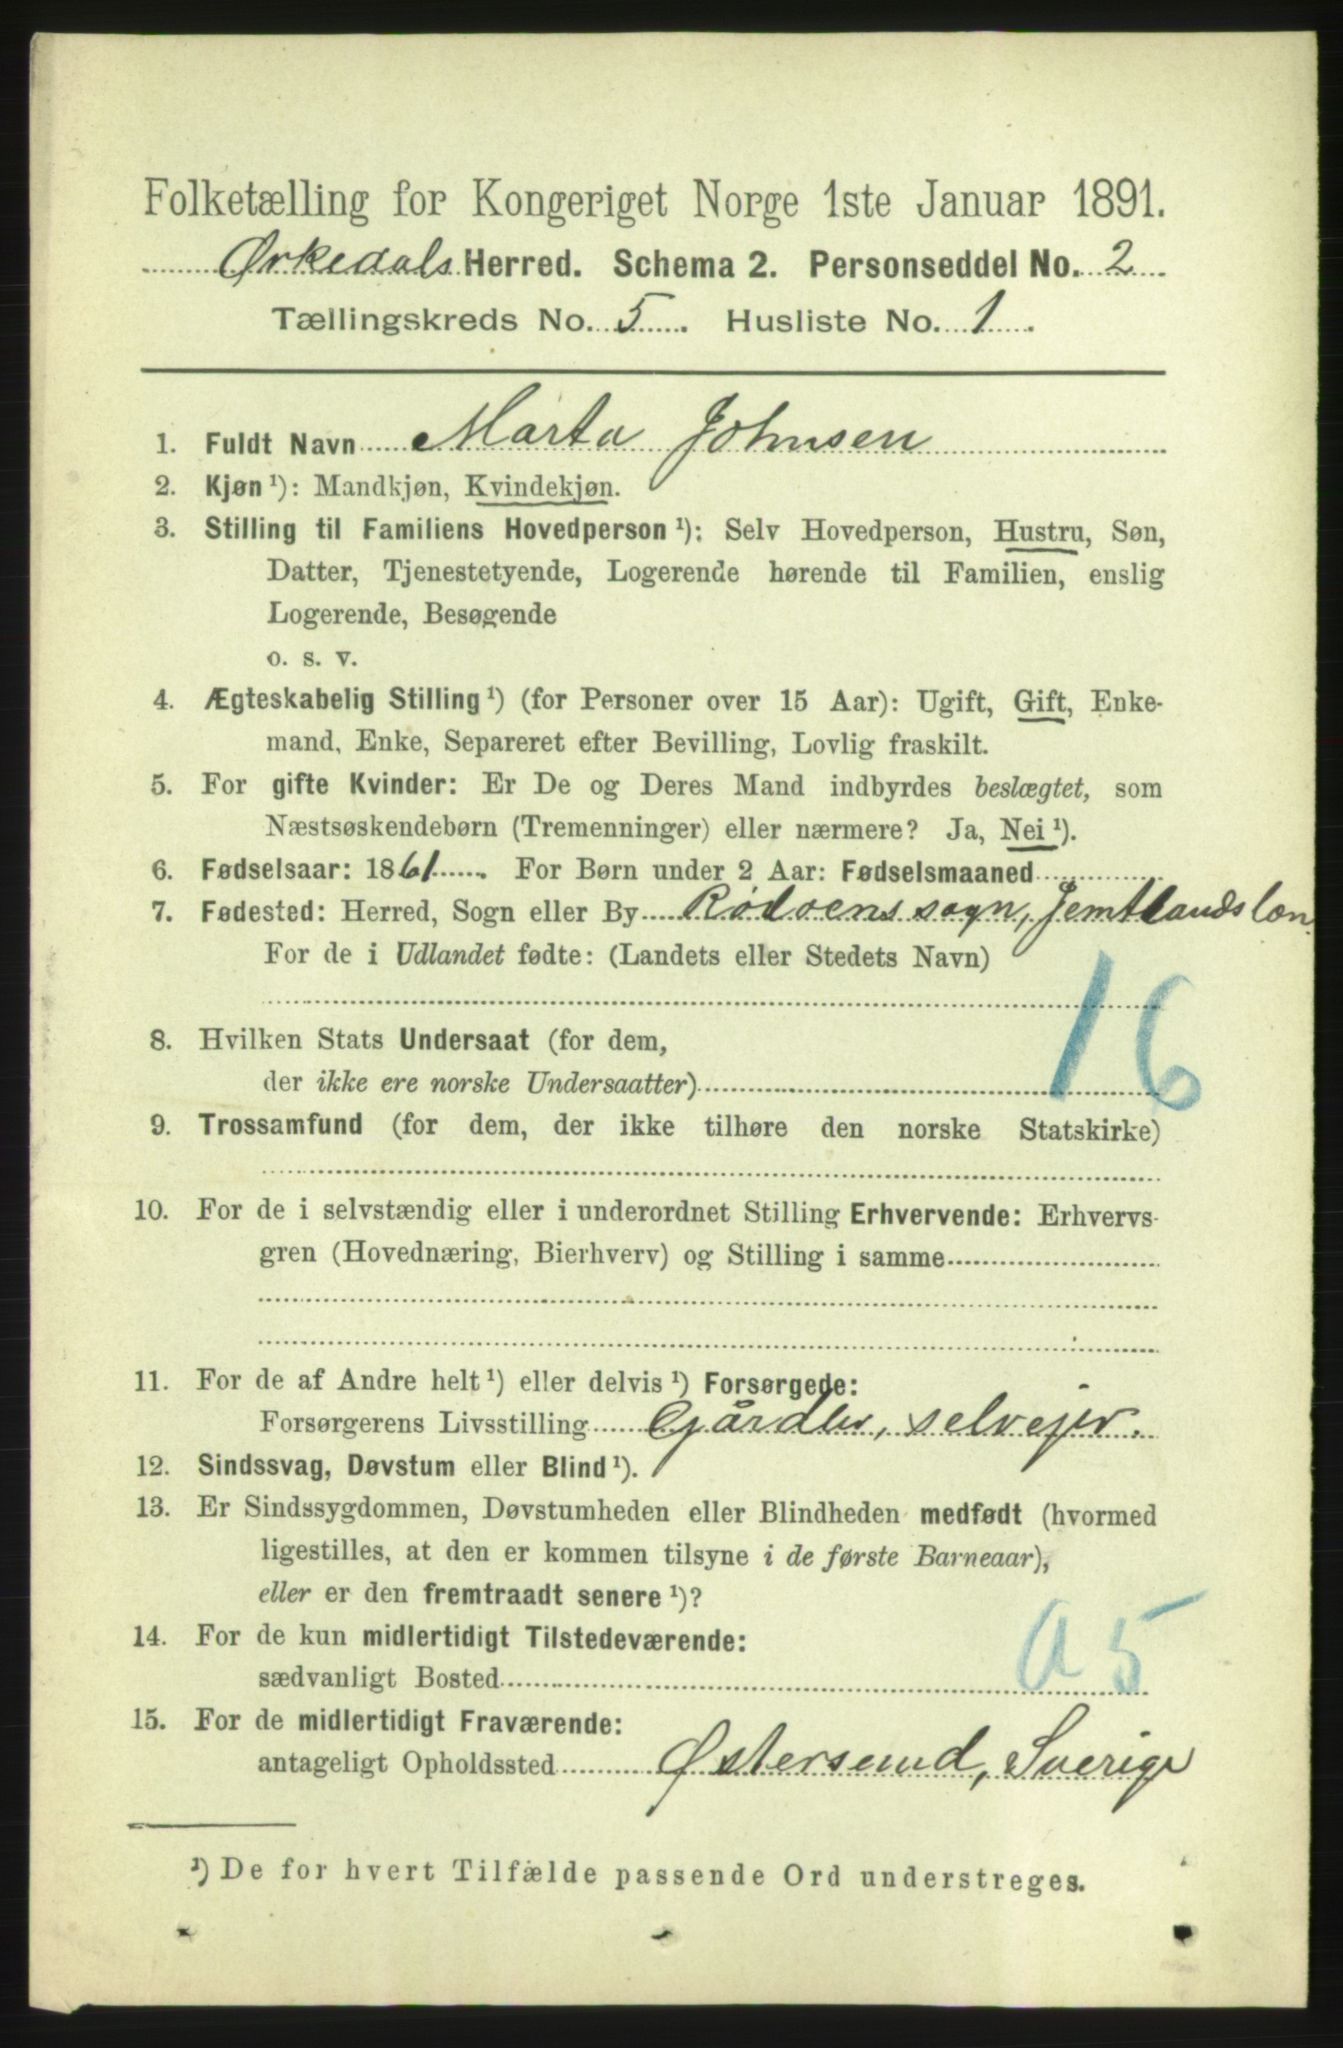 Folketælling for Kongeriget Norge 1ste Januar 1891.
Ørkedals Herred. Schema 2. Personseddel No. 2
Tællingskreds No. 5. Husliste No. 1.
1. Fuldt Navn Marta Johnsen
2. Kjøn ¹): Mandkjøn, Kvindekjøn.
3. Stilling til Familiens Hovedperson ¹): Selv Hovedperson, Hustru, Søn,
Datter, Tjenestetyende, Logerende hørende til Familien, enslig
Logerende, Besøgende
o. s. v.
4. Ægteskabelig Stilling ¹) (for Personer over 15 Aar): Ugift, Gift, Enke-
mand, Enke, Separeret efter Bevilling, Lovlig fraskilt.
5. For gifte Kvinder: Er De og Deres Mand indbyrdes beslægtet, som
Næstsøskendebørn (Tremenninger) eller nærmere? Ja, Nei ¹).
6. Fødselsaar: 1861. For Børn under 2 Aar: Fødselsmaaned
7. Fødested: Herred, Sogn eller By Rødøens sogn, Jemtlandslæn
For de i Udlandet fødte: (Landets eller Stedets Navn)
16
8. Hvilken Stats Undersaat (for dem,
der ikke ere norske Undersaatter)
9. Trossamfund (for dem, der ikke tilhøre den norske Statskirke)
10. For de i selvstændig eller i underordnet Stilling Erhvervende: Erhvervs-
gren (Hovednæring, Bierhverv) og Stilling i samme
11. For de af Andre helt ¹) eller delvis ¹) Forsørgede:
Forsørgerens Livsstilling Gårdbr, selvejer.
12. Sindssvag, Døvstum eller Blind ¹).
13. Er Sindssygdommen, Døvstumheden eller Blindheden medfødt (hvormed
ligestilles, at den er kommen tilsyne i de første Barneaar),
eller er den fremtraadt senere ¹)?
14. For de kun midlertidigt Tilstedeværende:
sædvanligt Bosted
a 5
15. For de midlertidigt Fraværende:
antageligt Opholdssted Østersund, Sverige
¹) De for hvert Tilfælde passende Ord understreges.